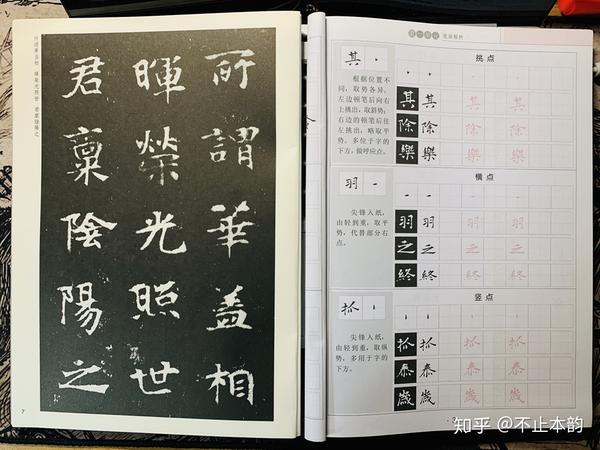 所謂華盖相
暉榮光照世
君稟陰陽之
7
挑点
其
根据位置不
同，取势各异。
左边顿笔后向右
上挑出，取斜势；
右边的顿笔后往
左挑出，略取平
势。多位于字的
下方，做呼应点。
其 其 其 其
除 除 除 除
樂 樂 樂 樂
横点
羽
尖锋入纸，
由轻到重，取平
势，代替部分右
点。
羽 羽 羽 羽
之 之 之 之
終 終 終 終
竖点
抓
尖锋入纸，
由轻到重，取纵
势，多用于字的
下方。
抓 抓 抓 抓
泰 泰 泰 泰
歲 歲 歲 歲
知乎 @不止本韵